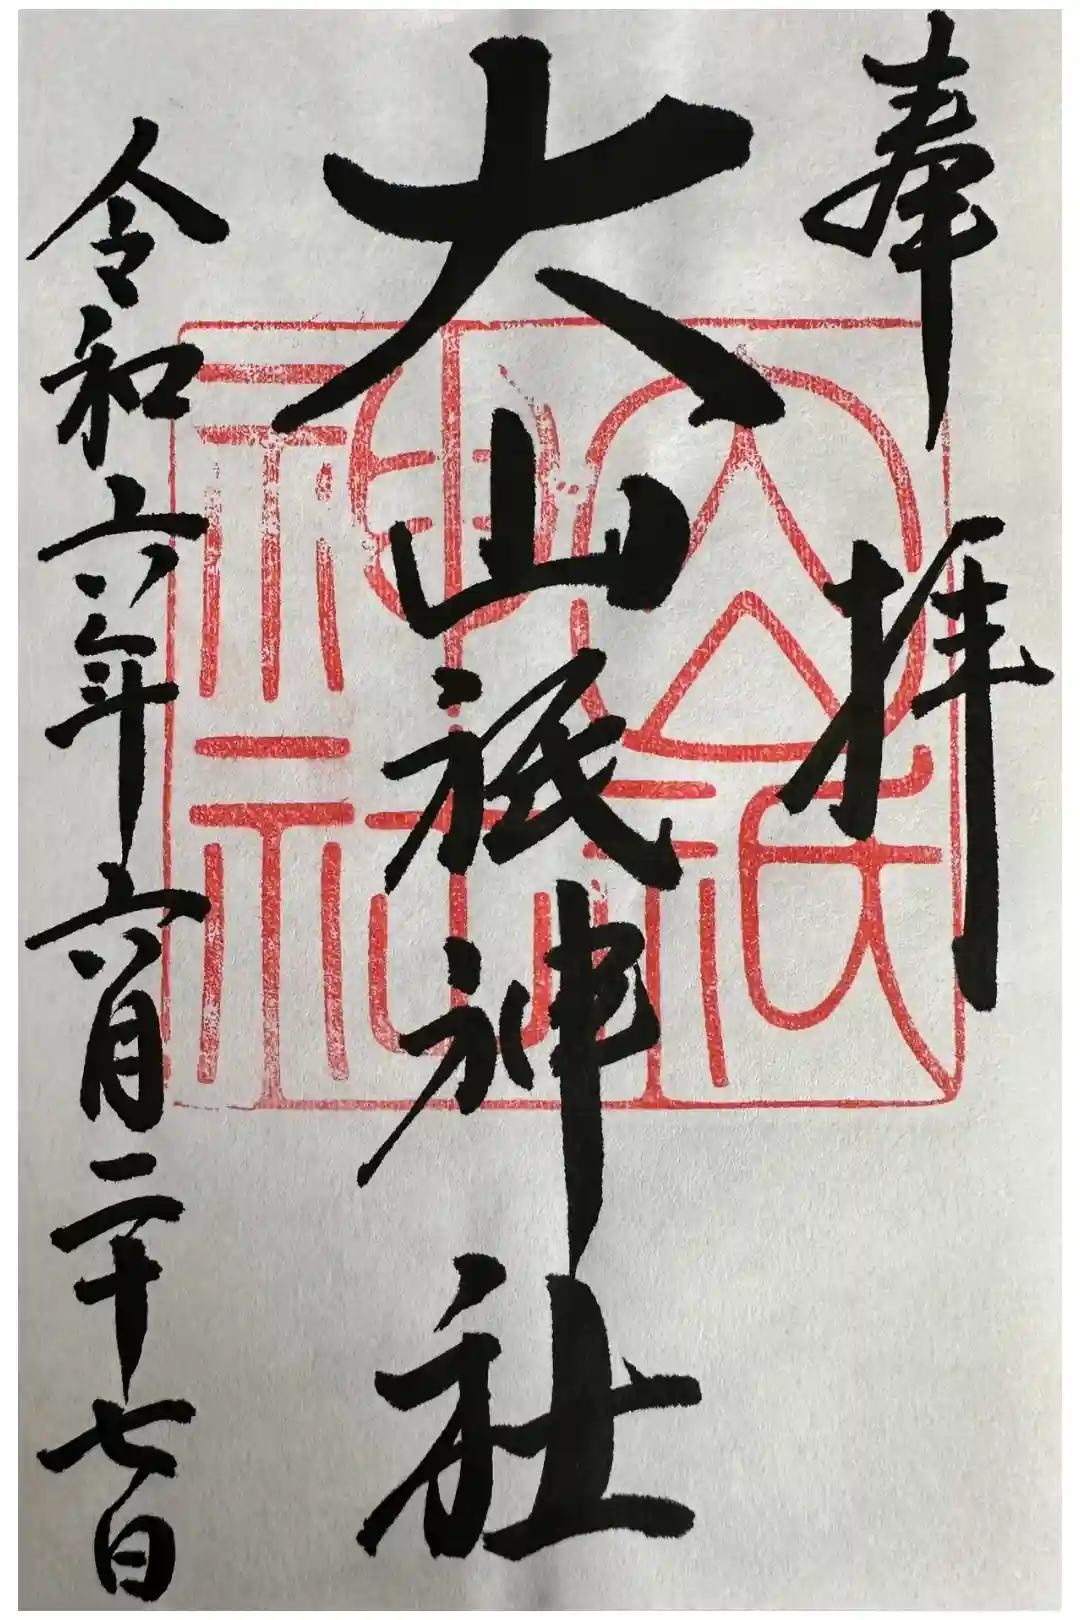 奉拝
大山祇神社
令和六年六月二十七日
大山祇
神社